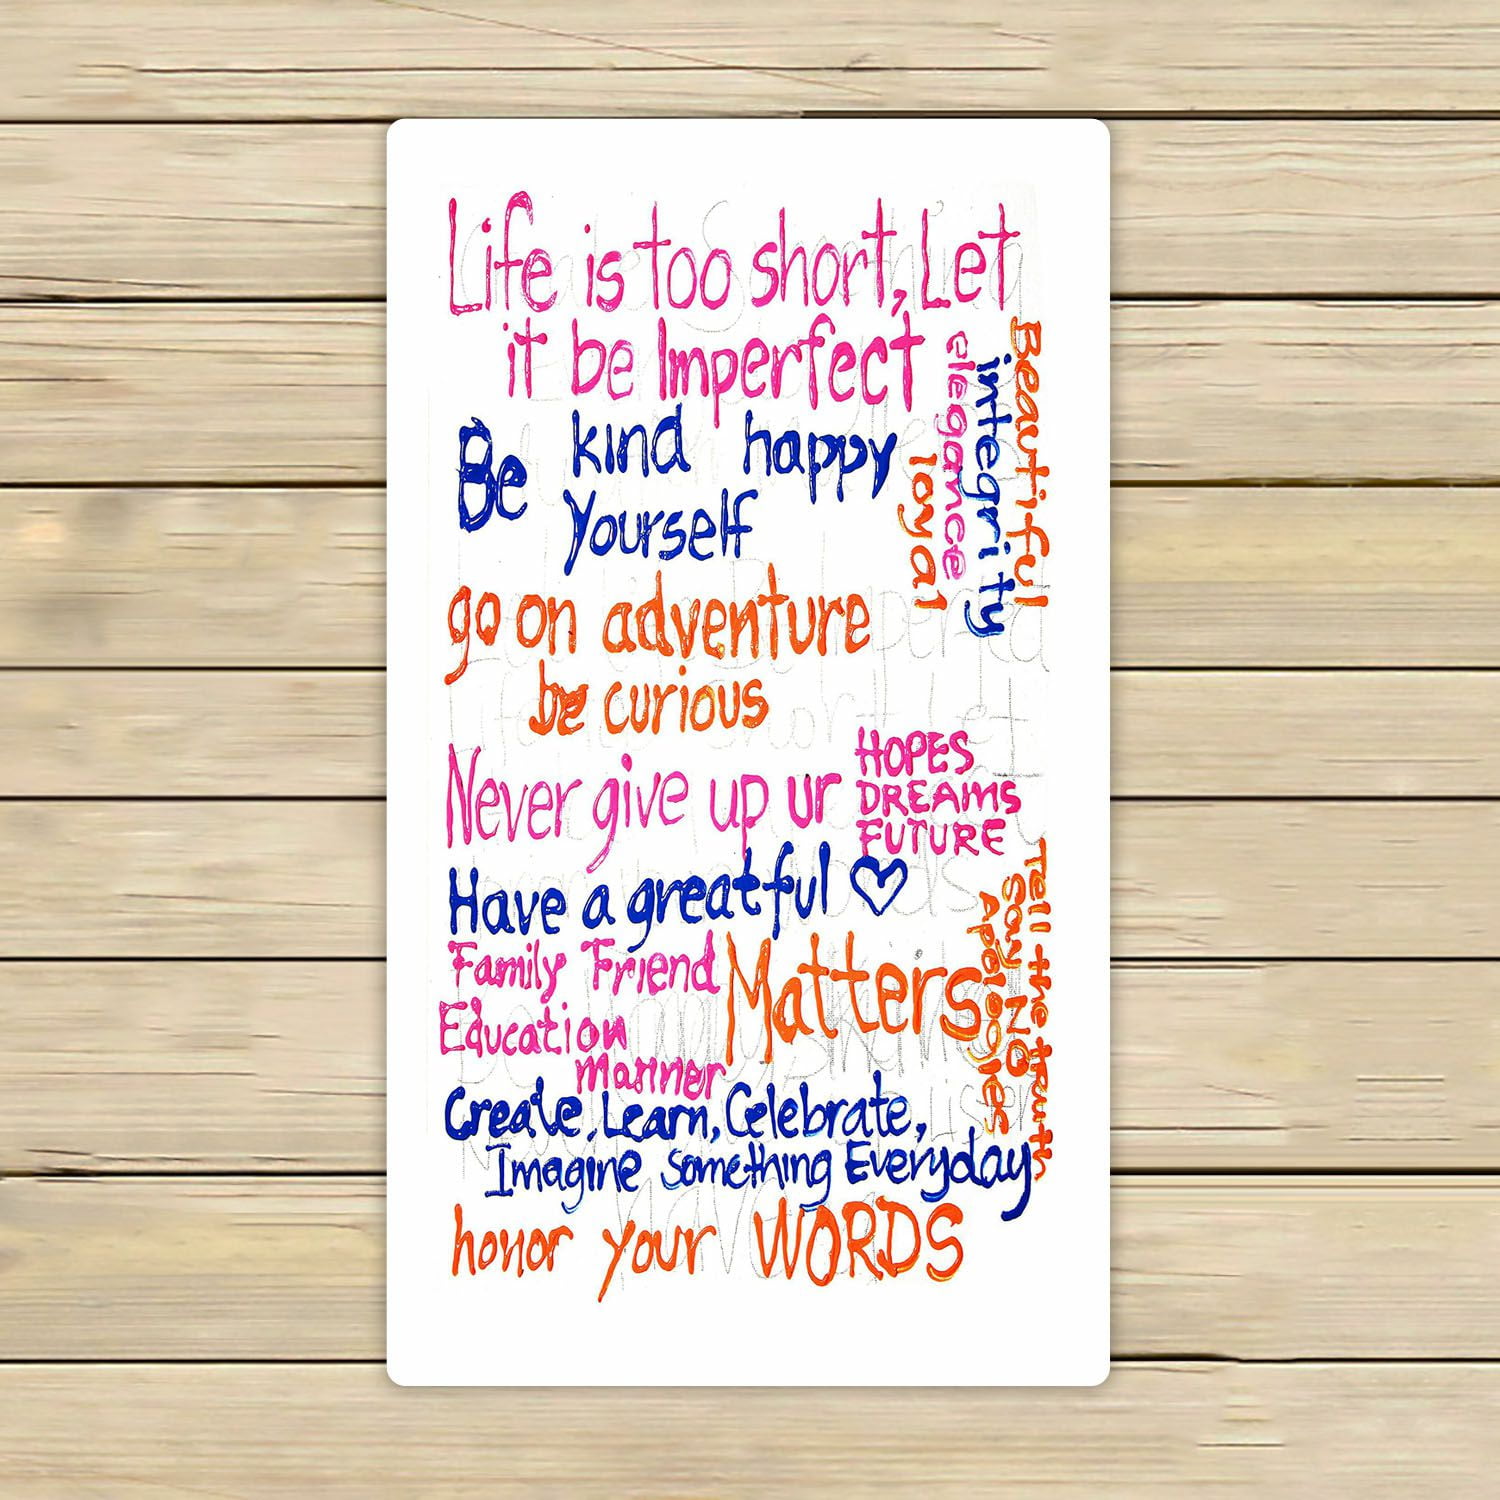 Life is too short, Let
it be Imperfect
Beautiful
integrity
elegance
loyal
Be kind happy
Yourself
go on adventure
be curious
Never give up ur HOPES
DREAMS
FUTURE
Have a greatful ♡
Family Friend Matters
Education
manner
Tell the truth
Say NO
Apologies
Create, Learn, Celebrate,
Imagine something Everyday
honor your WORDS